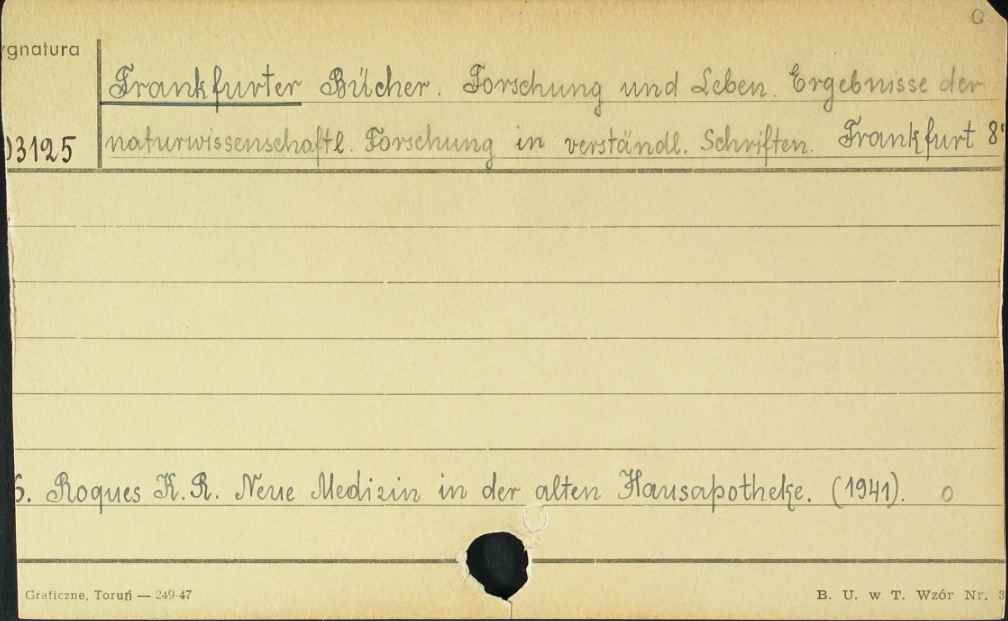 ygnatura
03125
Frankfurter Bücher. Forschung und Leben. Ergebnisse der
naturwissenschaftl. Forschung in verständl. Schriften. Frankfurt 8°
6. Roques K.R. Neue Medizin in der alten Hausapotheke. (1941). o
Graficzne, Toruń — 249-47
B. U. w T. Wzór Nr. 3